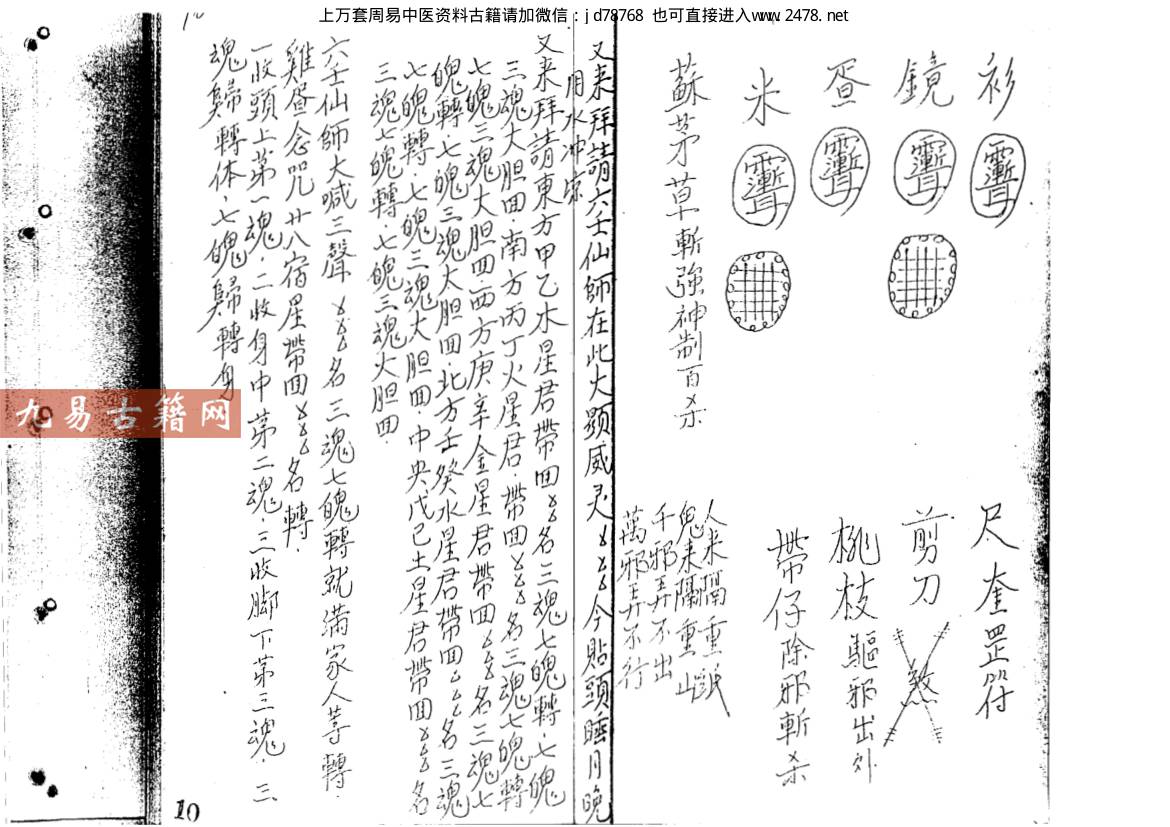 上万套周易中医资料古籍请加微信：jd78768 也可直接进入www.2478.net
衫
鏡
昼
米
蘇茅草斬強神制百杀
尺奎罡符
剪刀
煞
桃枝驅邪出外
帶仔除邪斬杀
人来隔重
鬼来隔重山
千邪弄不出
萬邪弄不行
又来拜請六壬仙師在此大顕威灵〻〻〻今貼頭睡月晚
用水冲涼
又来拜請東方甲乙木星君帶回〻〻〻名三魂七魄轉·七魄
三魂大胆回·南方丙丁火星君·帶回〻〻〻名三魂七魄轉
七魄三魂大胆回西方庚辛金星君帶回〻〻〻名三魂七
魄轉·七魄三魂大胆回·北方壬癸水星君帶回〻〻〻名三魂
七魄轉·七魄三魂大胆回·中央戊己土星君帶回〻〻〻名
三魂七魄轉·七魄三魂大胆回·
六壬仙師大喊三聲〻〻〻名三魂七魄轉就滿家人等轉·
雞昼念咒廿八宿星帶回〻〻〻名轉·
一收頭上第一魂·二收身中第二魂·三收脚下第三魂·三
魂歸轉体·七魄歸轉身
九易古籍网
10